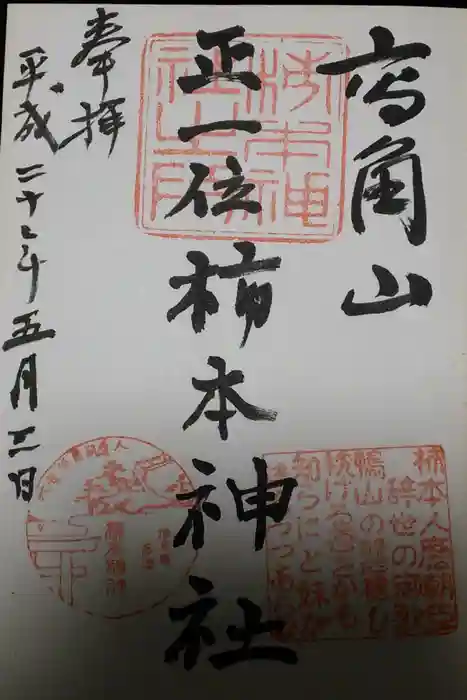 高角山
正一位柿本神社
奉拝
平成二十七年五月二日
柿本神
社之印
柿本人麿朝臣
辞世の御歌
鴨山の磐根し
枕けるわれをかも
知らにと妹が
待ちつつあらむ
柿本神社